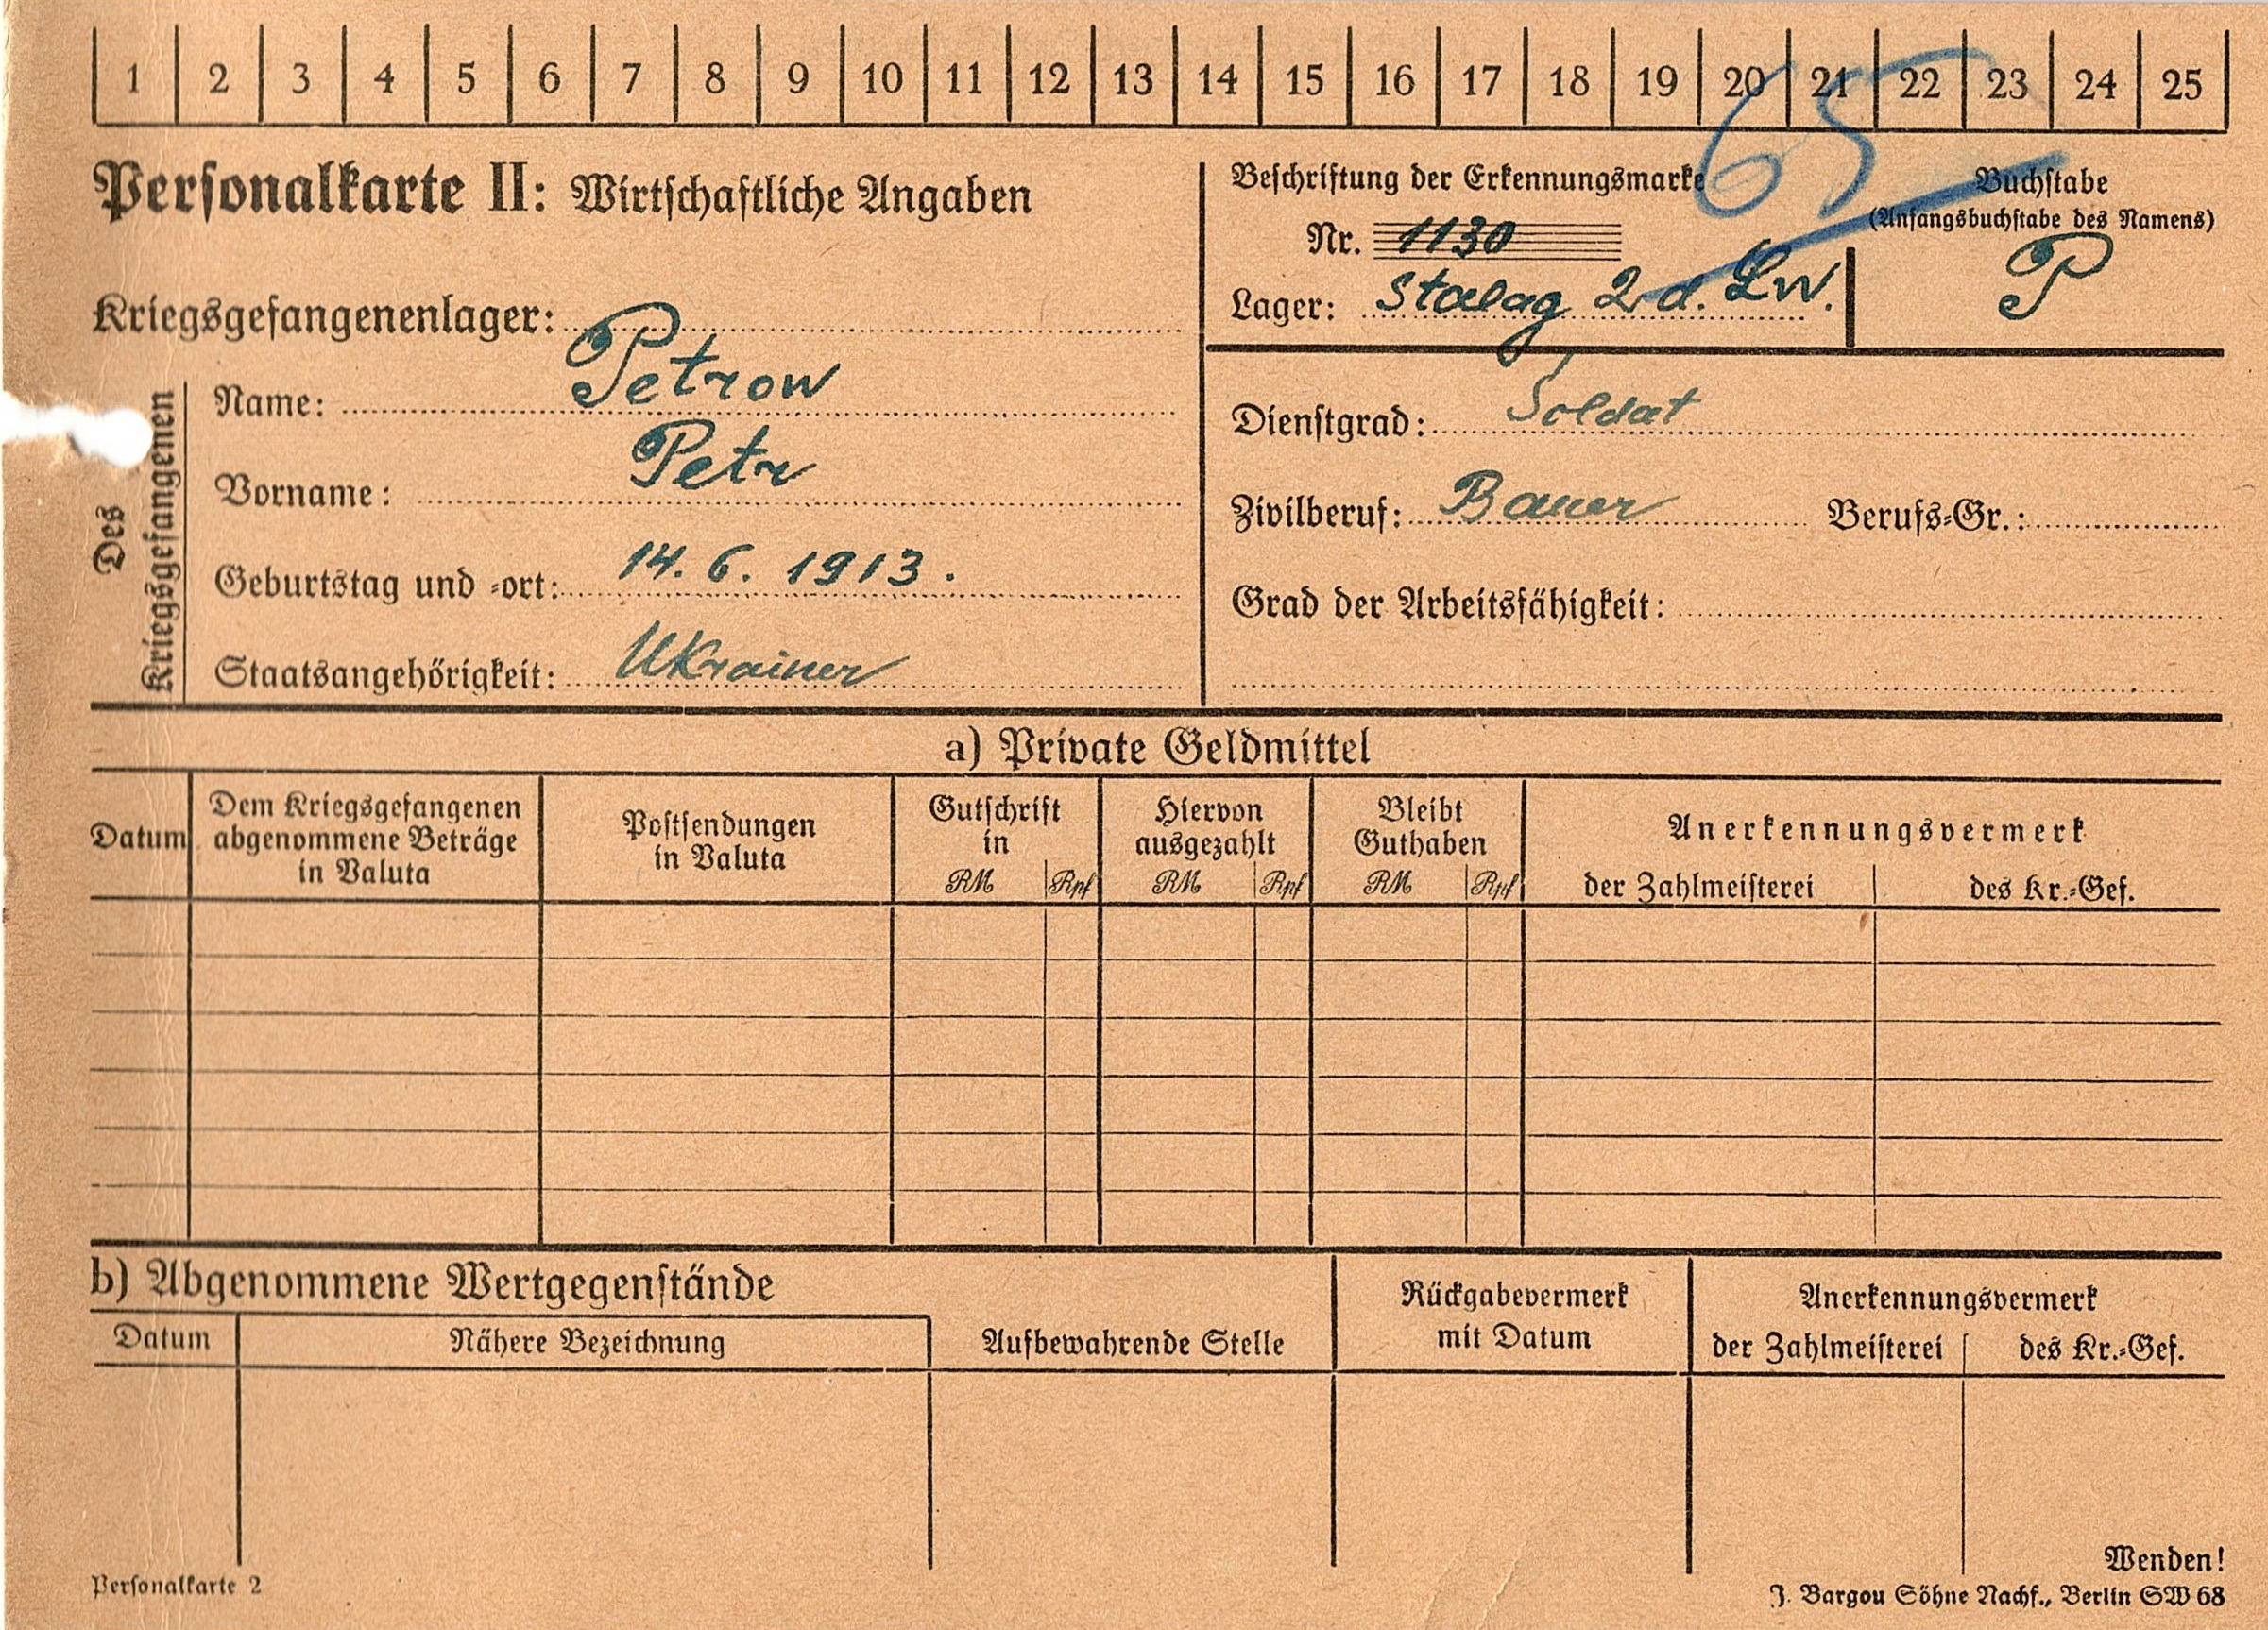 1 2 3 4 5 6 7 8 9 10 11 12 13 14 15 16 17 18 19 20 21 22 23 24 25
65
Personalkarte II: Wirtschaftliche Angaben
Kriegsgefangenenlager:
Des Kriegsgefangenen
Name: Petrow
Vorname: Petr
Geburtstag und -ort: 14. 6. 1913.
Staatsangehörigkeit: Ukrainer
Beschriftung der Erkennungsmarke
Nr. 1130
Lager: Stalag 2 d. Lw.
Buchstabe
(Anfangsbuchstabe des Namens)
P
Dienstgrad: Soldat
Zivilberuf: Bauer Berufs-Gr.:
Grad der Arbeitsfähigkeit:
a) Private Geldmittel
Datum
Dem Kriegsgefangenen
abgenommene Beträge
in Valuta
Postsendungen
in Valuta
Gutschrift
in
RM Rpf
Hiervon
ausgezahlt
RM Rpf
Bleibt
Guthaben
RM Rpf
Anerkennungsvermerk
der Zahlmeisterei des Kr.-Gef.
b) Abgenommene Wertgegenstände
Datum Nähere Bezeichnung Aufbewahrende Stelle
Rückgabevermerk
mit Datum
Anerkennungsvermerk
der Zahlmeisterei des Kr.-Gef.
Wenden!
Personalkarte 2
J. Bargou Söhne Nachf., Berlin SW 68